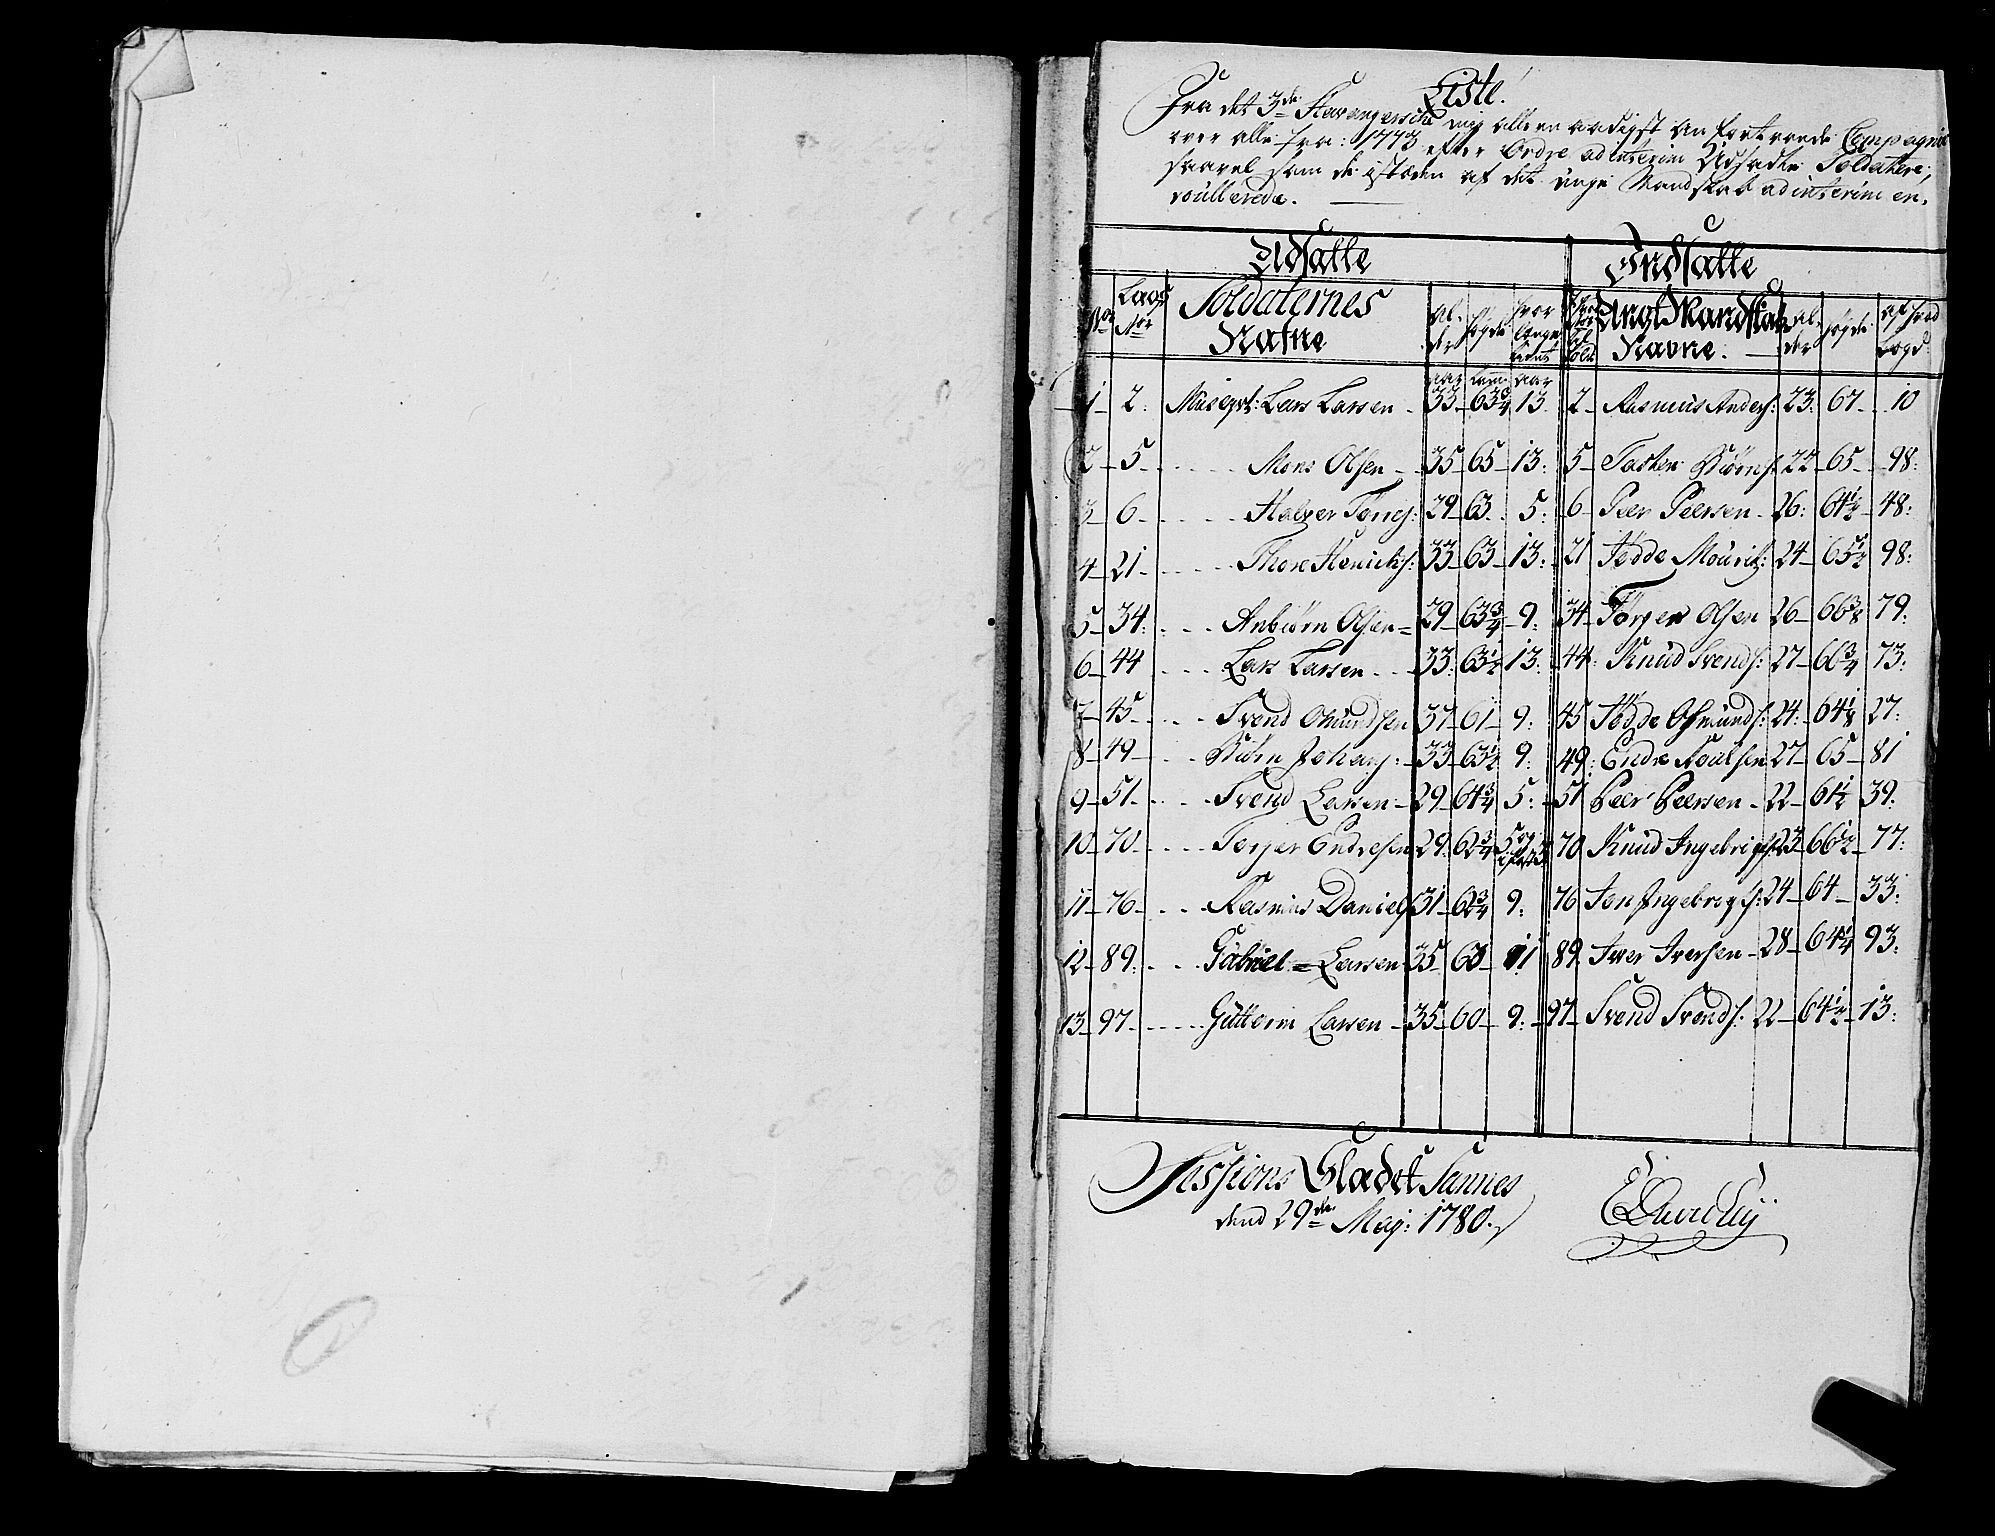 Liste.
Fra det 3de Stavangerske mig allernaadigst Anfortroede Compagnie
over alle fra: 1773 efter Ordre ad interim Udsadte Soldatere,
saavel som de isteden af det unge Mandskab ad interim en,
roullerede.
Udsatte Indsatte
No Laegs No Soldaternes Nafne Al- der høyde hvor længe tient Ungt Mandskab Navne. al- der høyde af hvad Lægd
aar tom aar
1 2. Musqt: Lars Larsen 33 63 3/4 13. 2 Rasmus Anders: 23. 67 10
2 5 Mons Olsen 35 65 13: 5 Tosten Biørns: 22 65 98:
3 6 Halver Tønes: 29 63 5: 6 Peer Peersen 26: 64 1/2 48:
4 21 Thore Henricks: 33 63 13: 21 Tedde Mourits: 24 65 1/2 98:
5 34: Anbiørn Olsen 29 63 3/4 9: 34 Tørger Olsen 26 66 3/8 79.
6 44 Lars Larsen 33: 63 1/2 13: 44: Knud Svends: 27 66 3/4 73:
7 45 Svend Omundsen 37 61 9: 45 Tedde Osmunds: 24: 64 1/8 27:
8 49 Biørn Johans: 33 63 1/2 9: 49: Endre Poulsen 27 65 81
9 51 Svend Larsen 29 64 3/4 5: 51 Peer Peersen 22 61 1/2 39:
10 70 Torjer Endresen 29: 62 3/4 5 og 70 Knud Ingebrigts: 23 66 1/2 77:
11 76 Rasmus Daniels 31 62 3/4 9: 76 Jon Ingebrigts: 24 64 33:
12 89: Gabriel Larsen 35 63 11 89. Iver Iversen 28 64 1/4 93:
13 97 Guttorm Larsen 35 60 9: 97 Svend Svends: 22 64 1/2 13:
Sessions Stædet Sannes
dend 29de Maj: 1780.